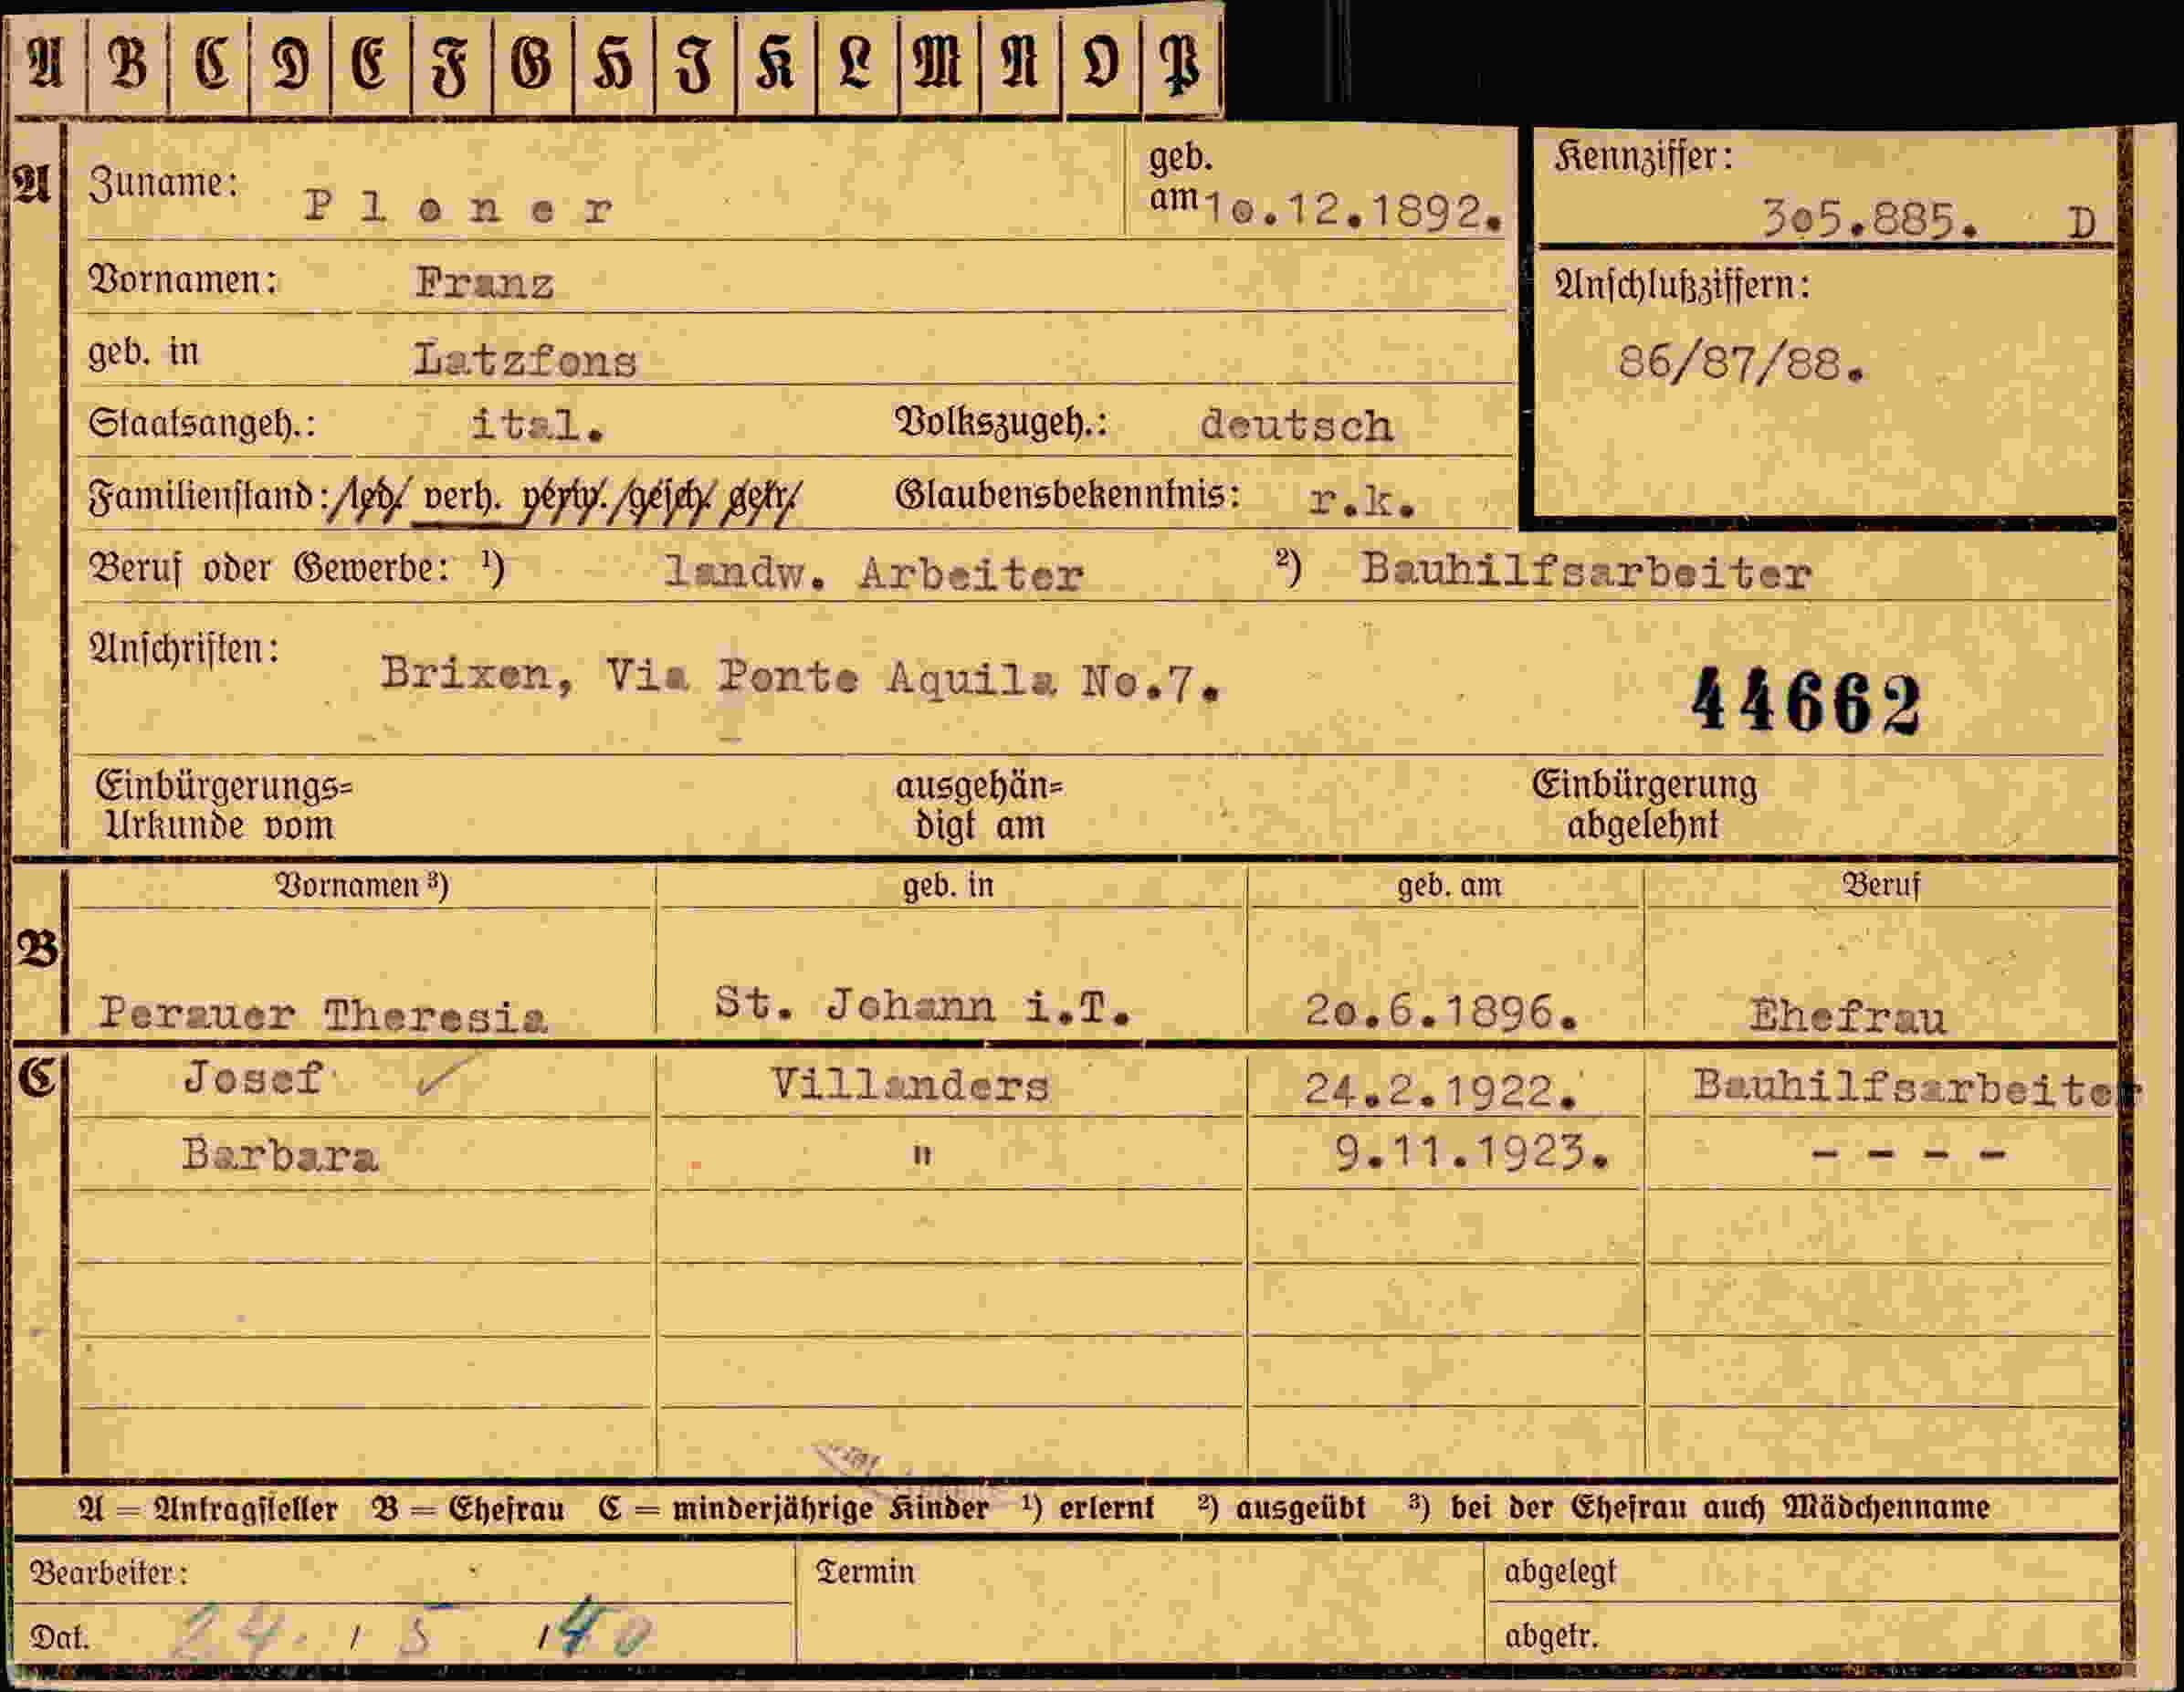 A B C D E F G H I K L M N O P
A Zuname: Ploner geb. am 10.12.1892. Kennziffer: 305.885. D
Vornamen: Franz Anschlußziffern:
geb. in Latzfons 86/87/88.
Staatsangeh.: ital. Volkszugeh.: deutsch
Familienstand: led. verh. verw. gesch. getr. Glaubensbekenntnis: r.k.
Beruf oder Gewerbe: ¹) landw. Arbeiter ²) Bauhilfsarbeiter
Anschriften: Brixen, Via Ponte Aquila No.7. 44662
Einbürgerungs= ausgehän= Einbürgerung
Urkunde vom digt am abgelehnt
Vornamen ³) geb. in geb. am Beruf
B
Perauer Theresia St. Johann i.T. 20.6.1896. Ehefrau
C Josef ✓ Villanders 24.2.1922. Bauhilfsarbeiter
Barbara " 9.11.1923. - - - -
A = Antragsteller B = Ehefrau C = minderjährige Kinder ¹) erlernt ²) ausgeübt ³) bei der Ehefrau auch Mädchenname
Bearbeiter: Termin abgelegt
Dat. 24. / 5 / 40 abgetr.